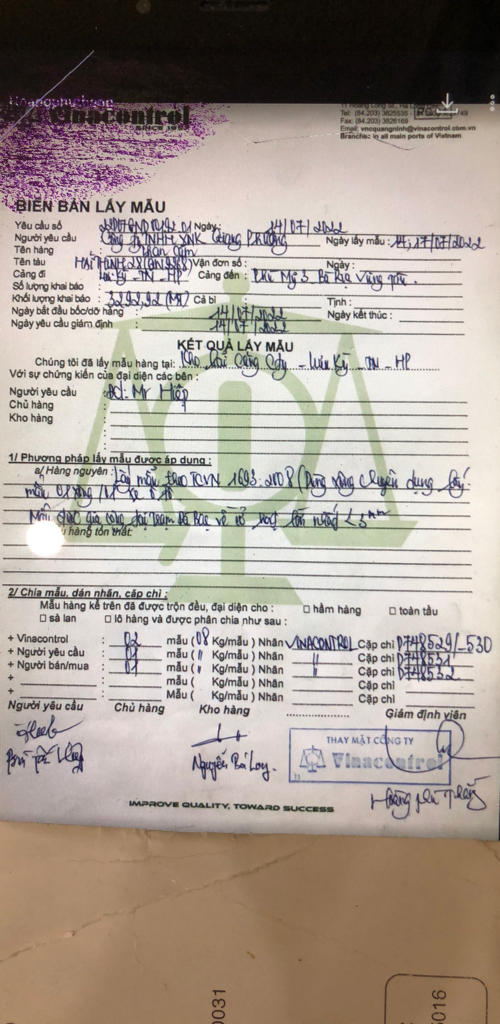 Hoangphuthong
Vinacontrol
SINCE 1957
11 Hoang Long St., Ha L
Tel: (84.203) 3825535 -
Fax: (84.203) 3826169
Email: vncquangninh@vinacontrol.com.vn
Branches: in all main ports of Vietnam
BIÊN BẢN LẤY MẪU
Yêu cầu số Ngày: 14/07/2022
Người yêu cầu Công ty TNHH XNK Giang Phương Ngày lấy mẫu: 14, 17/07/2022
Tên hàng Than Cám
Tên tàu HẢI THỊNH 28 Vận đơn số: Ngày:
Cảng đi - TN - HP Cảng đến: Phú Mỹ 3 Bà Rịa Vũng Tàu.
Số lượng khai báo
Khối lượng khai báo : 3292,92 (MT) Cả bì Tịnh:
Ngày bắt đầu bốc/dỡ hàng 14/07/2022 Ngày kết thúc:
Ngày yêu cầu giám định 14/07/2022
KẾT QUẢ LẤY MẪU
Chúng tôi đã lấy mẫu hàng tại: Kho bãi Cảng - Lưu Kỳ - TN - HP
Với sự chứng kiến của đại diện các bên:
Người yêu cầu Đ/d: Mr Hiệp
Chủ hàng
Kho hàng
1/ Phương pháp lấy mẫu được áp dụng:
a/ Hàng nguyên: Lấy mẫu theo TCVN 1693:2008 (Dùng xẻng chuyên dụng lấy
mẫu
Mẫu được gia công tại trạm về cỡ hạt lớn nhất < 3mm
hàng tổn thất:
2/ Chia mẫu, dán nhãn, cặp chì:
Mẫu hàng kể trên đã được trộn đều, đại diện cho: □ hầm hàng □ toàn tầu
□ sà lan □ lô hàng và được phân chia như sau:
+ Vinacontrol 02 mẫu (08 Kg/mẫu) Nhãn VINACONTROL Cặp chì D748529/-530
+ Người yêu cầu 01 mẫu (" Kg/mẫu) Nhãn " Cặp chì D748531
+ Người bán/mua 01 mẫu (" Kg/mẫu) Nhãn " Cặp chì D748532
+ mẫu ( Kg/mẫu) Nhãn Cặp chì
+ Mẫu ( Kg/mẫu) Nhãn Cặp chì
Người yêu cầu Chủ hàng Kho hàng Giám định viên
THAY MẶT CÔNG TY
Vinacontrol
Nguyễn Bá Long.
IMPROVE QUALITY, TOWARD SUCCESS
0031
016